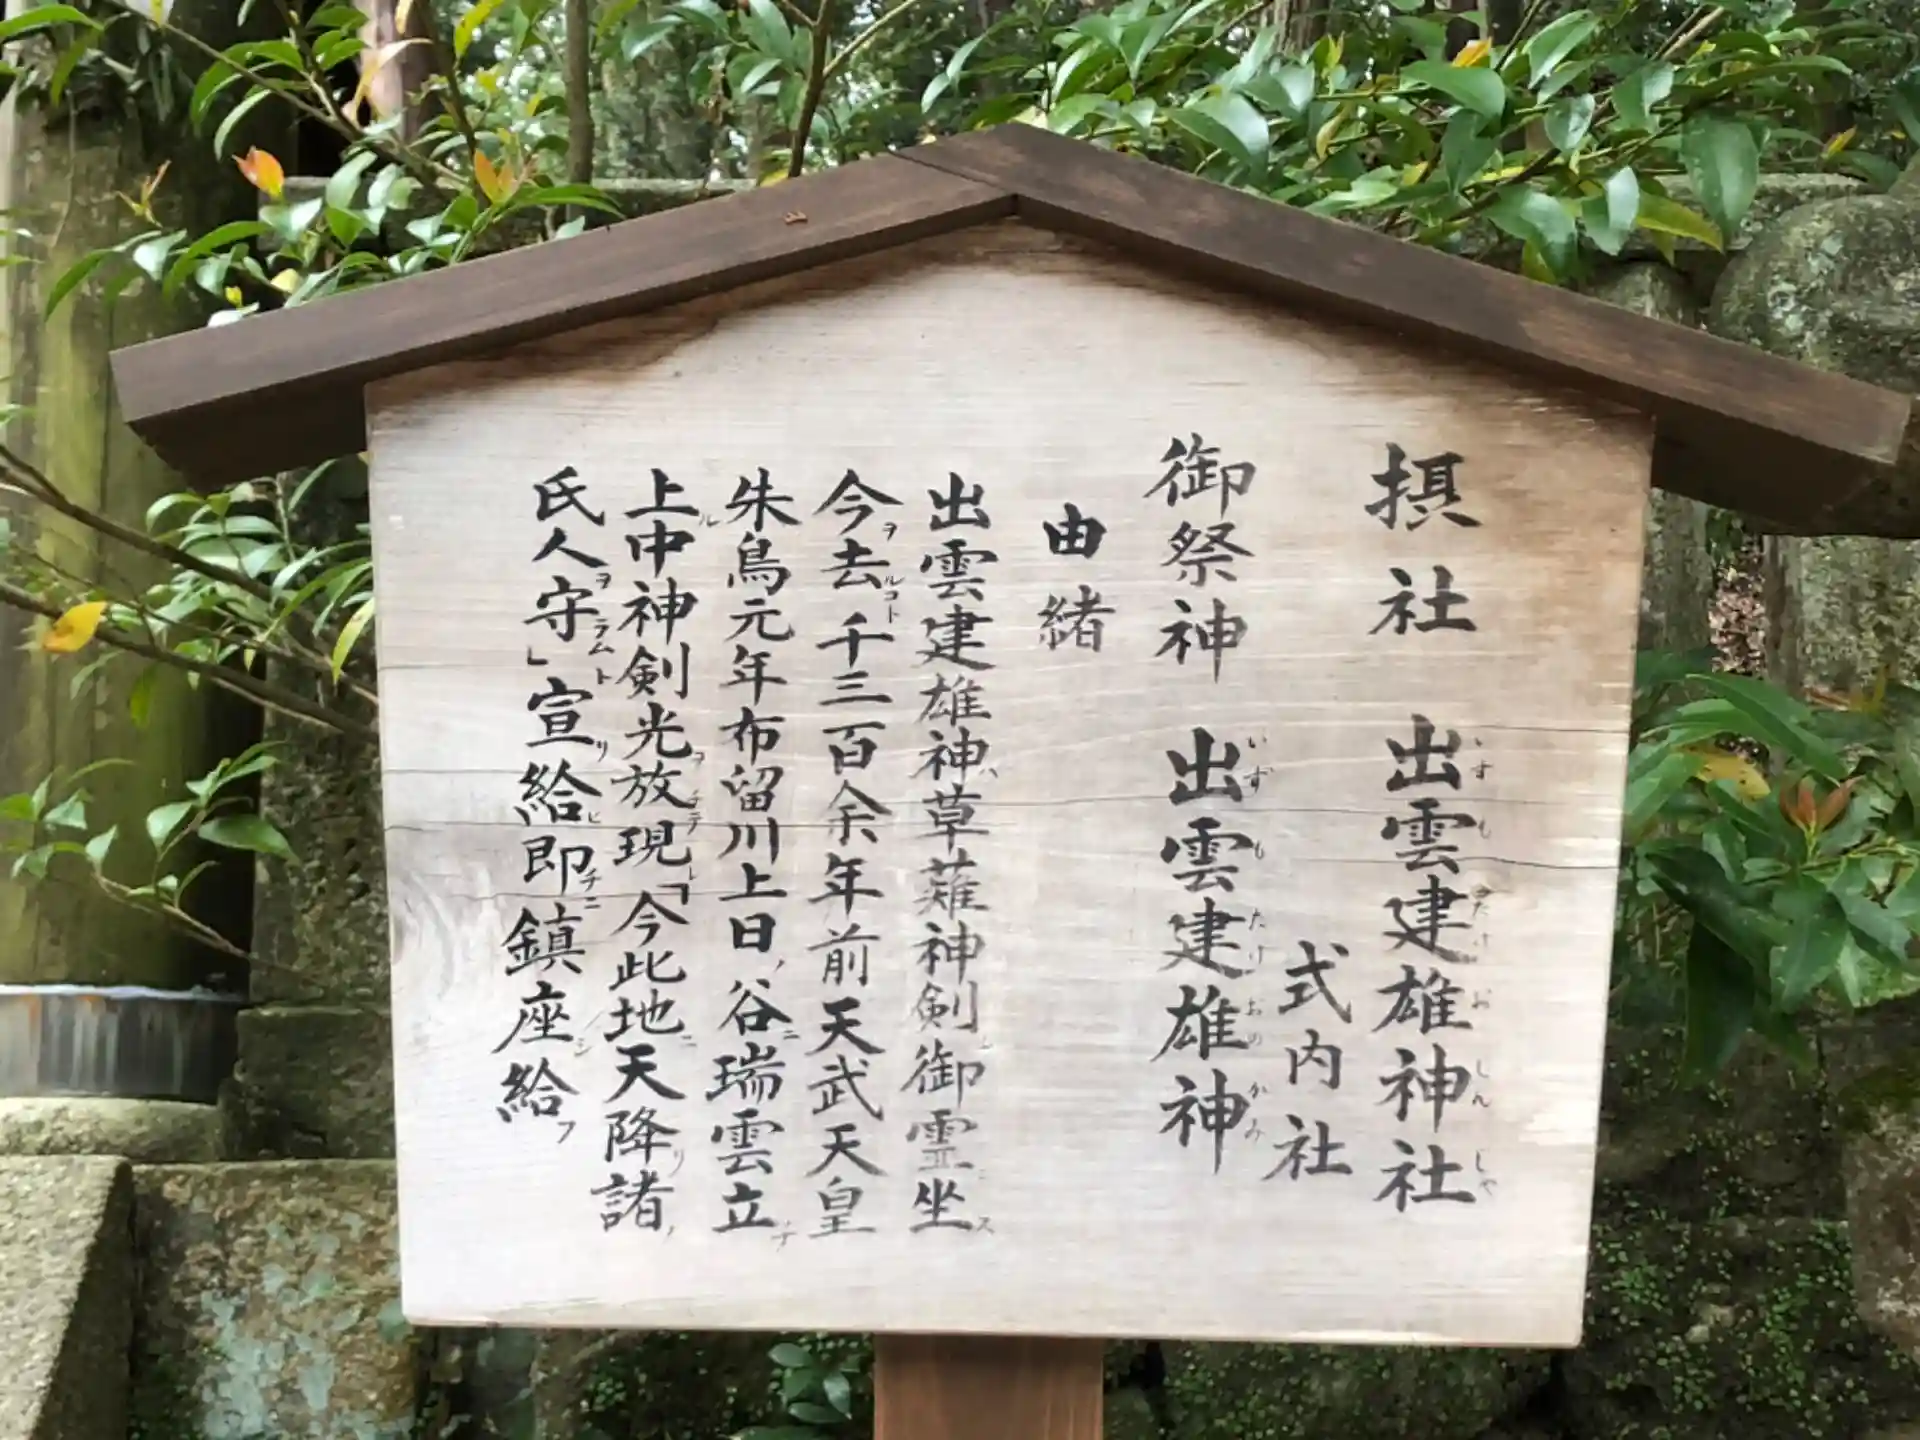 摂社 出雲建雄神社
式内社
御祭神 出雲建雄神
由緒
出雲建雄神ハ草薙神剣ノ御霊ニ坐ス
今ヲ去ルコト千三百余年前天武天皇
朱鳥元年布留川上日ノ谷ニ瑞雲立ナ
上ル中神剣光ヲ放チテ現レ「今此地ニ天降リ諸ノ
氏人ヲ守ラムト」宣リ給ヒ即チニ鎮座シ給フ